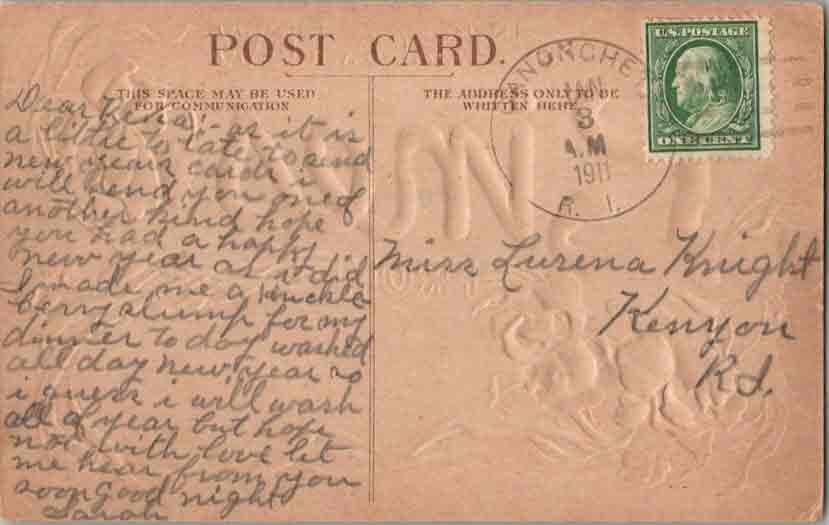 POST CARD.
THIS SPACE MAY BE USED
FOR COMMUNICATION
THE ADDRESS ONLY TO BE
WRITTEN HERE
ANONCHE
JAN
3
A.M
1911
R. I.
U.S. POSTAGE
ONE CENT
Dear Rena, as it is
a little to late to send
new years cards i
will send you one of
another kind hope
you had a happy
new year as i did
I made me a huckle
berry slump for my
dinner to day washed
all day new year so
i guess i will wash
all of year but hope
not with love let
me hear from you
soon Good night
Sarah
Miss Lurena Knight
Kenyon
R.I.